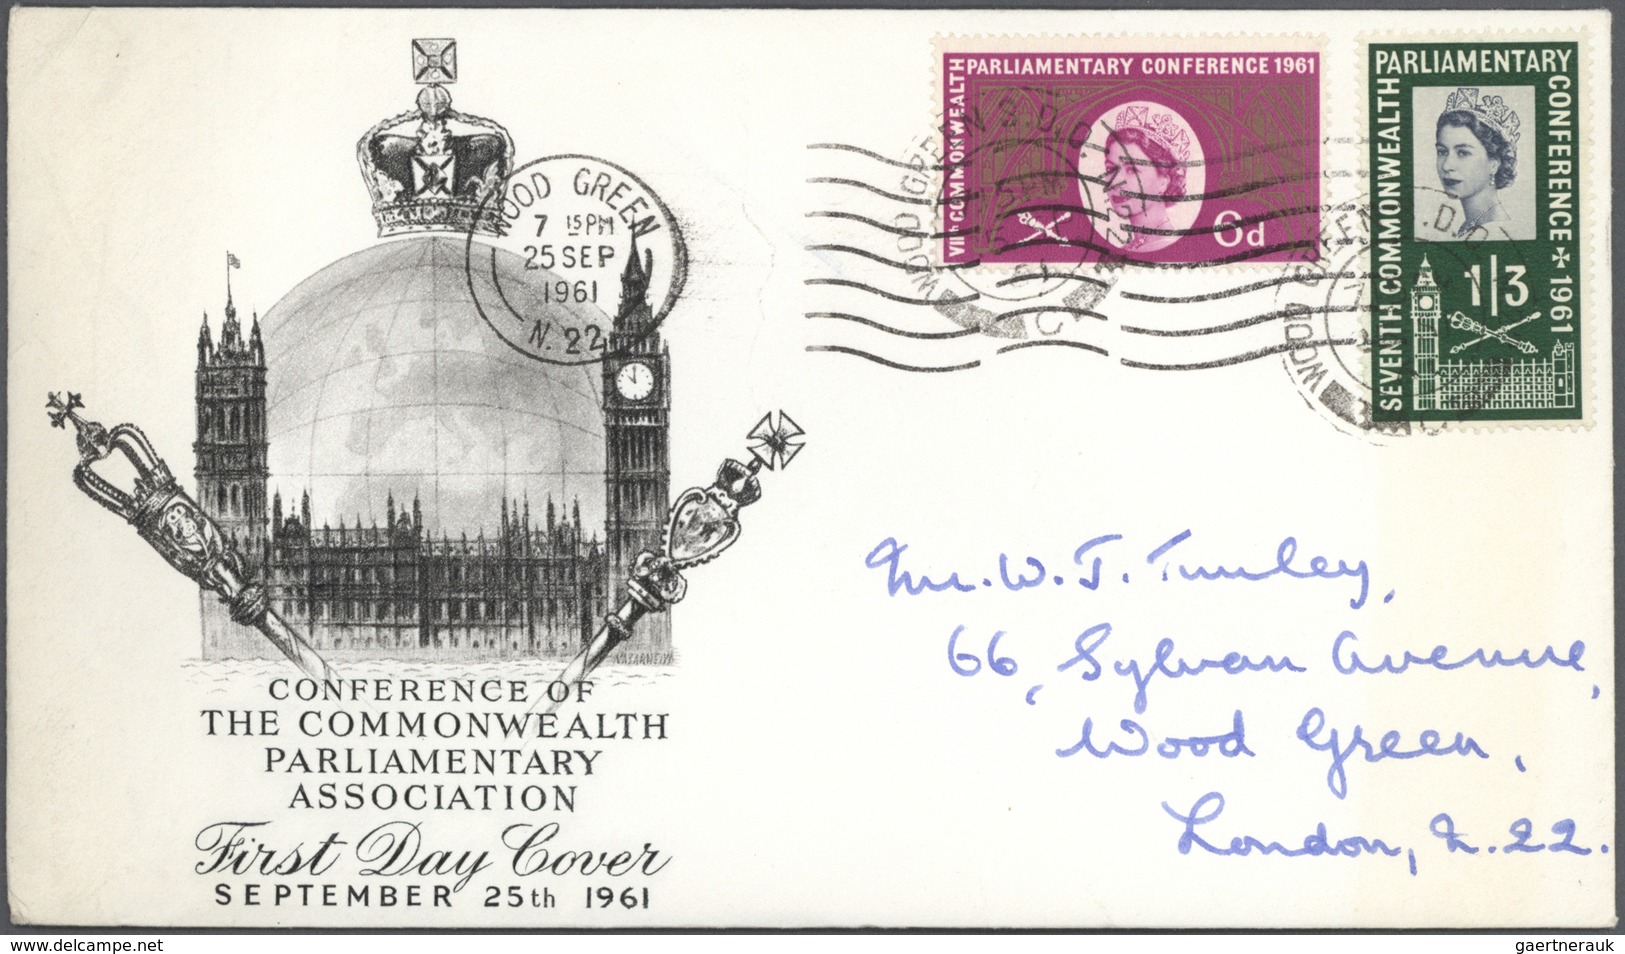 WOOD GREEN
7 15 PM
25 SEP
1961
N. 22
VIIth COMMONWEALTH
PARLIAMENTARY CONFERENCE 1961
6d
WOOD GREEN S.D.O. N.22
SEVENTH COMMONWEALTH
PARLIAMENTARY
CONFERENCE 1961
1/3
CONFERENCE OF
THE COMMONWEALTH
PARLIAMENTARY
ASSOCIATION
First Day Cover
SEPTEMBER 25th 1961
Mr. W. J. Tunley,
66, Sylvan Avenue,
Wood Green,
London, N. 22.
www.delcampe.net
gaertnerauk